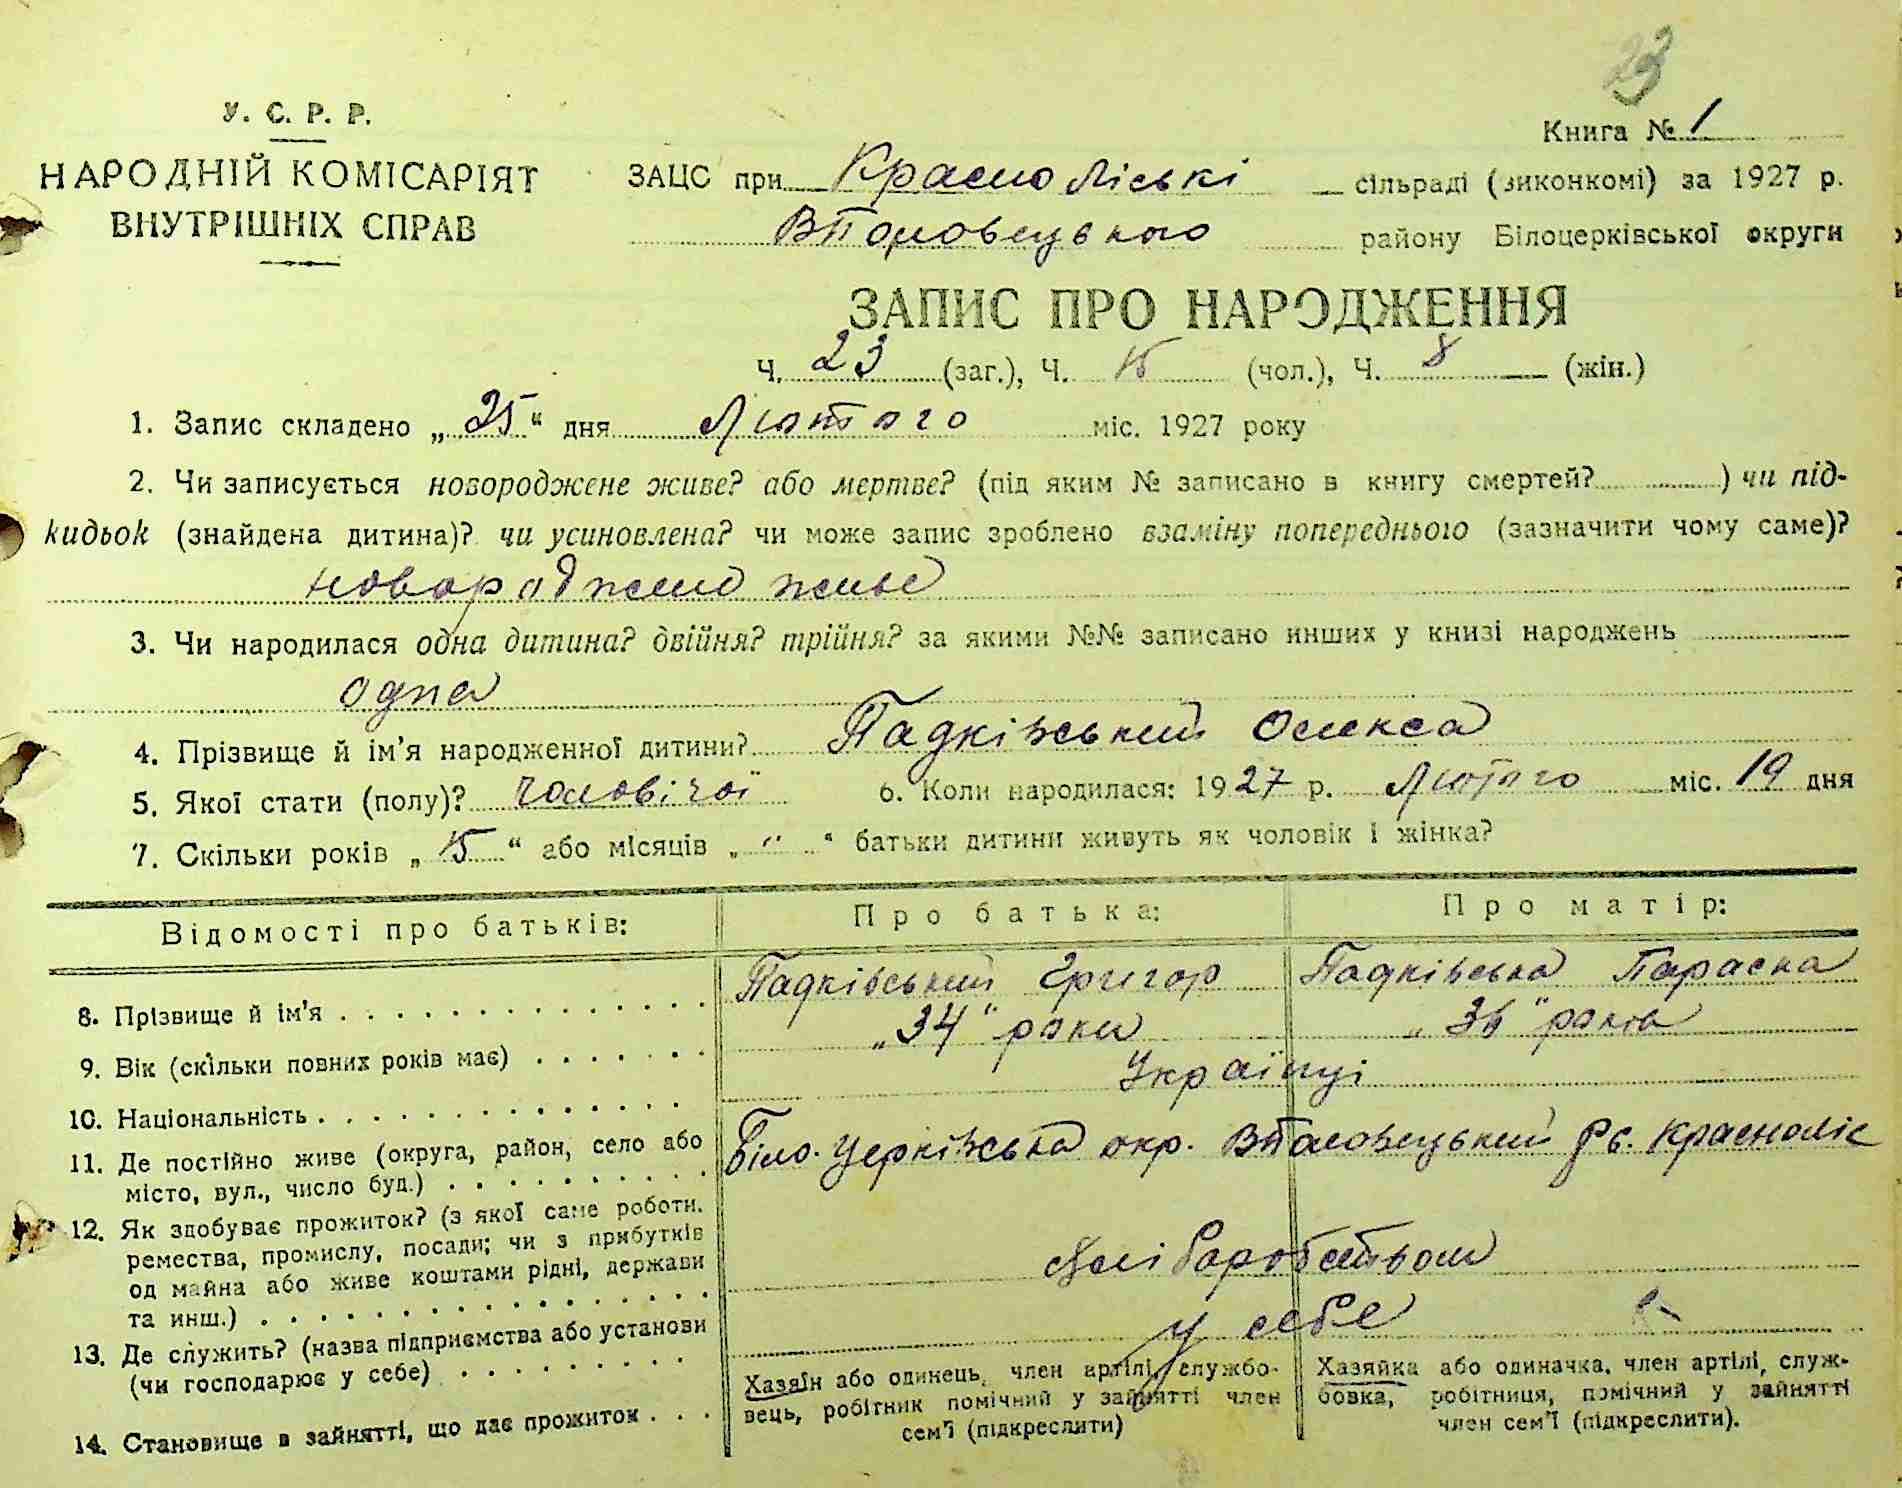 23
У. С. Р. Р.
Книга № 1
НАРОДНІЙ КОМІСАРІЯТ
ВНУТРІШНІХ СПРАВ
ЗАЦС при Красноліські сільраді (виконкомі) за 1927 р.
району Білоцерківської округи
ЗАПИС ПРО НАРОДЖЕННЯ
Ч. 23 (заг.), Ч. 15 (чол.), Ч. 8 (жін.)
1. Запис складено „ 25 “ дня Лютого міс. 1927 року
2. Чи записується новороджене живе? або мертве? (під яким № записано в книгу смертей? ) чи під-
кидьок (знайдена дитина)? чи усиновлена? чи може запис зроблено взаміну попереднього (зазначити чому саме)?
новороджене живе
3. Чи народилася одна дитина? двійня? трійня? за якими №№ записано инших у книзі народжень
одна
4. Прізвище й ім'я народженної дитини? Падківський Олекса
5. Якої стати (полу)? чоловічої 6. Коли народилася: 1927 р. Лютого міс. 19 дня
7. Скільки років „ 15 “ або місяців „ " “ батьки дитини живуть як чоловік і жінка?
Відомості про батьків: Про батька: Про матір:
8. Прізвище й ім'я Падківський Григор Падківська Параска
9. Вік (скільки повних років має) „34" роки „36" років
10. Національність Українці
11. Де постійно живе (округа, район, село або
місто, вул., число буд.) Біло.Церківська окр. с. Красноліс
12. Як здобуває прожиток? (з якої саме роботи,
ремества, промислу, посади; чи з прибутків
од майна або живе коштами рідні, держави
та инш.) Хліборобством
13. Де служить? (назва підприємства або установи
(чи господарює у себе) у себе
14. Становище в зайнятті, що дає прожиток
Хазяїн або одинець, член артілі, службо-
вець, робітник помічний у зайнятті член
сем'ї (підкреслити)
Хазяйка або одиначка, член артілі, служ-
бовка, робітниця, помічний у зайнятті
член сем'ї (підкреслити).